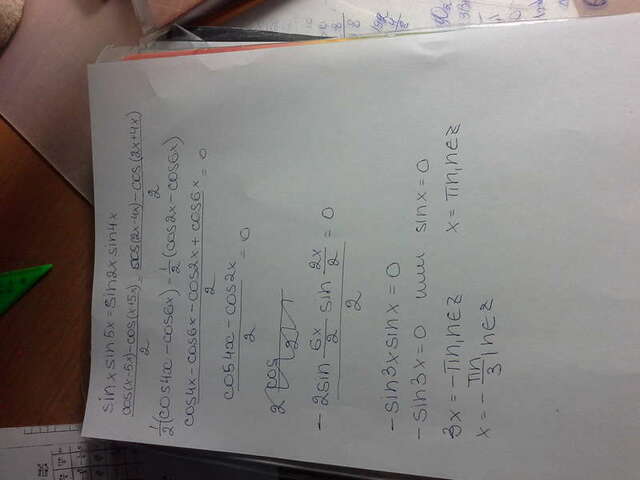 sinx sin5x = sin2x sin4x
cos(x-5x)-cos(x+5x)/2 = cos(2x-4x)-cos(2x+4x)/2
1/2(cos4x - cos6x) = 1/2(cos2x - cos6x)
cos4x - cos6x - cos2x + cos6x/2 = 0
cos4x - cos2x/2 = 0
-2sin 6x/2 sin 2x/2/2 = 0
-sin3x sinx = 0
-sin3x = 0 или sinx = 0
3x = -πn, n∈z x = πn, n∈z
x = -πn/3, n∈z